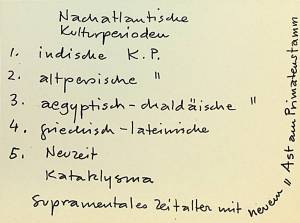 Nachatlantische
Kulturperioden
1. indische K.P.
2. altpersische "
3. aegyptisch-chaldäische "
4. griechisch-lateinische
5. Neuzeit
Kataklysma
Supramentales Zeitalter mit neuem "Ast am Primatenstamm